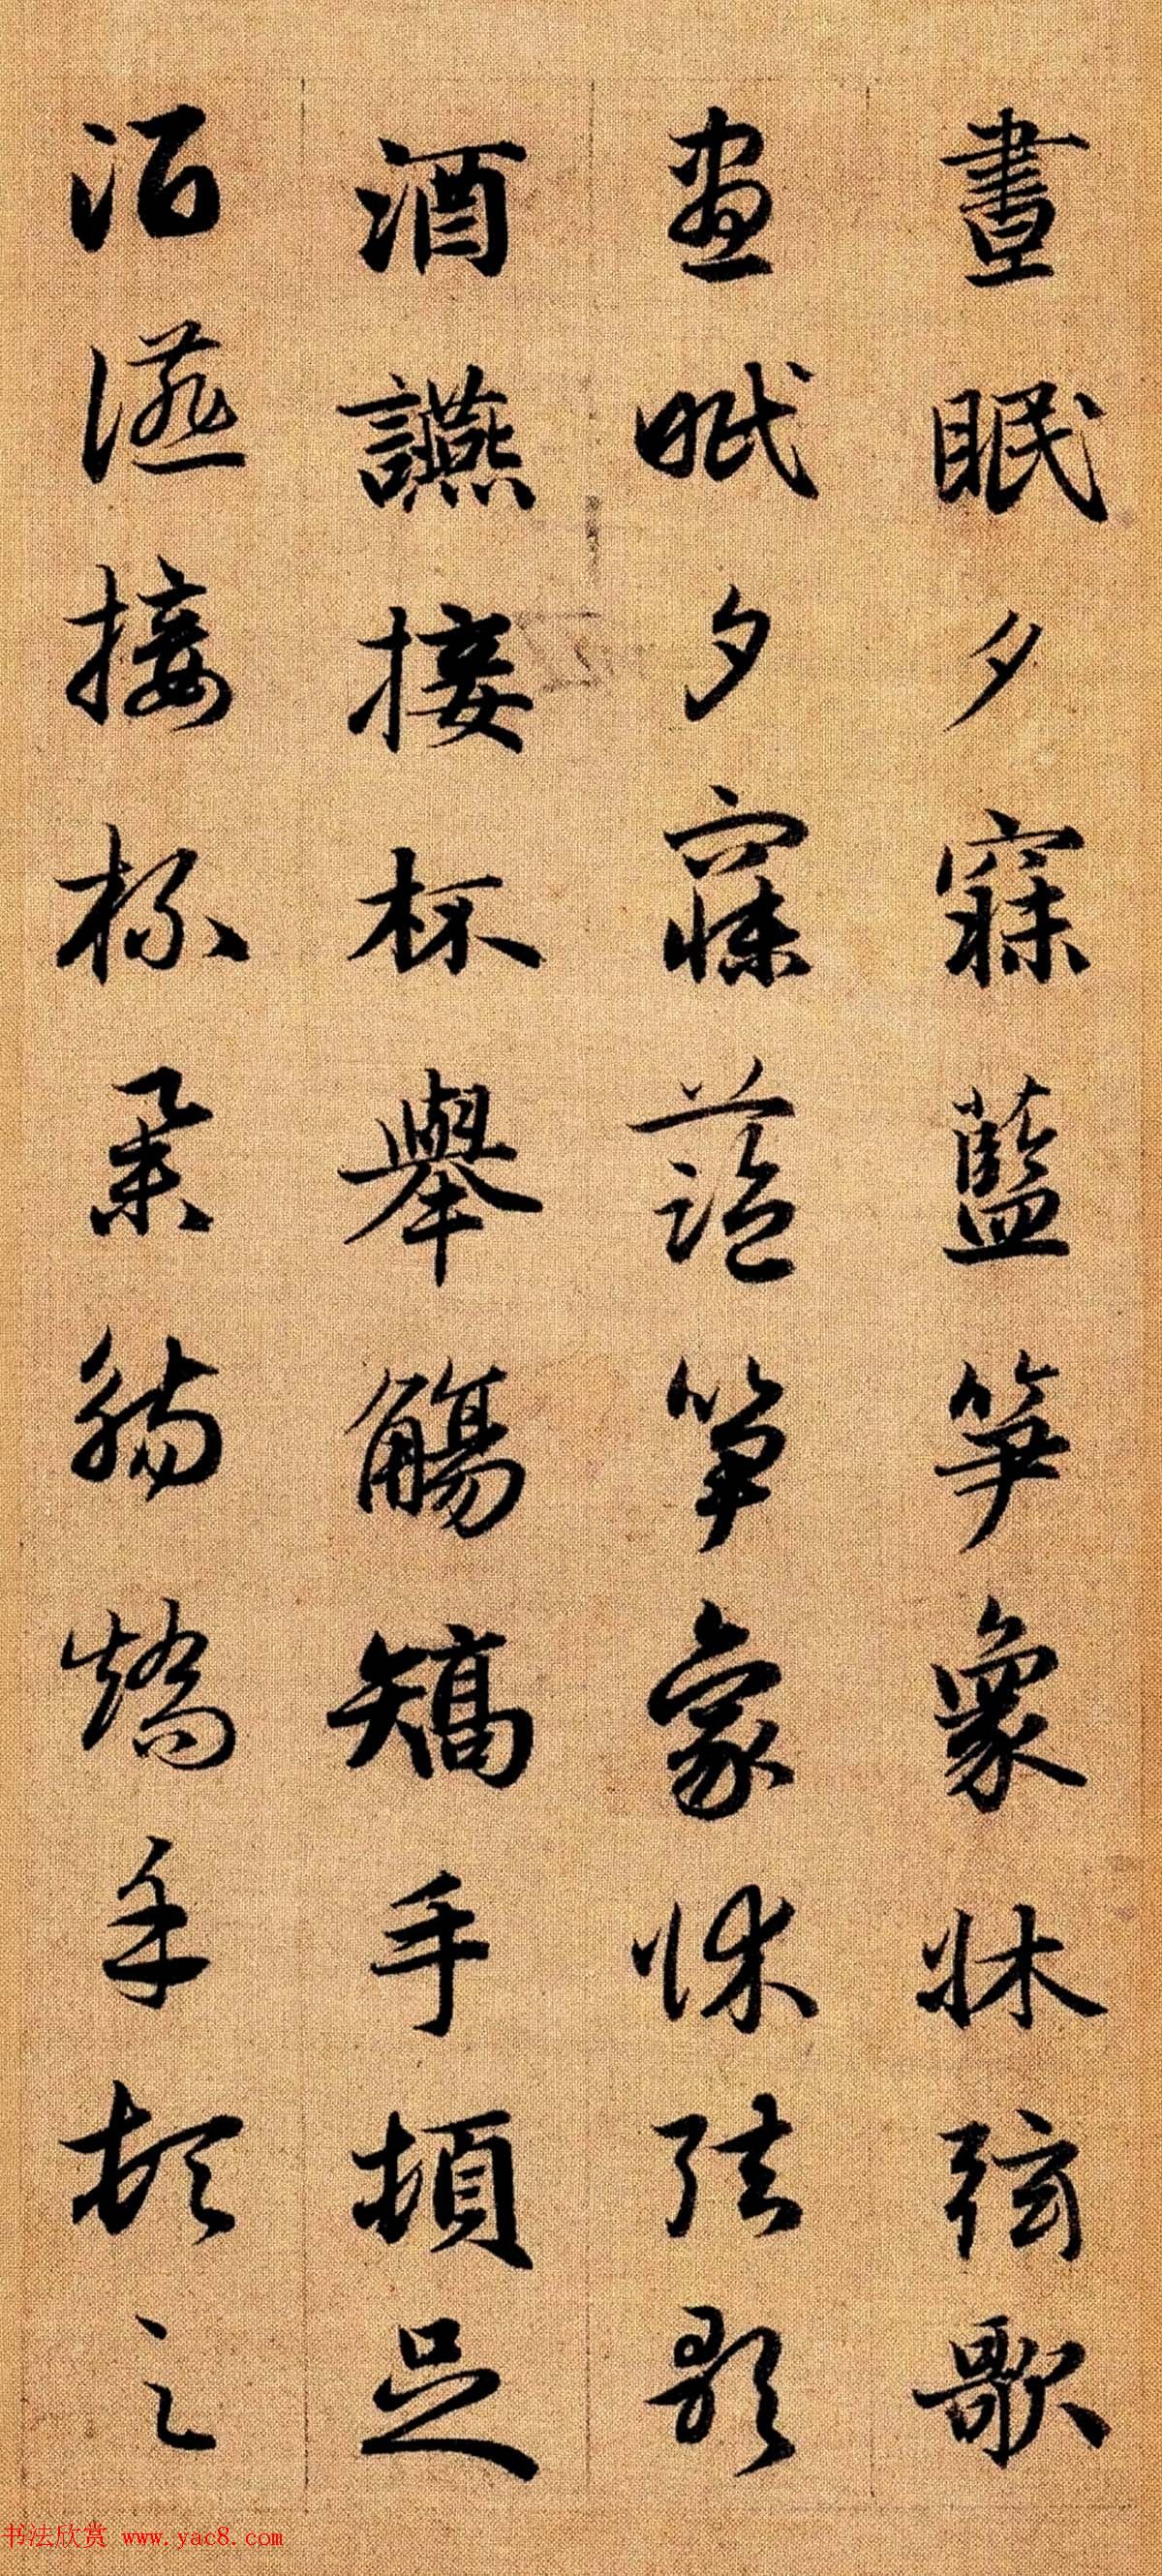 晝眠夕寐藍笋象牀弦歌
晝眠夕寐藍笋象牀弦歌
酒讌接杯舉觴矯手頓足
酒讌接杯舉觴矯手頓足
书法欣赏 www.yac8.com